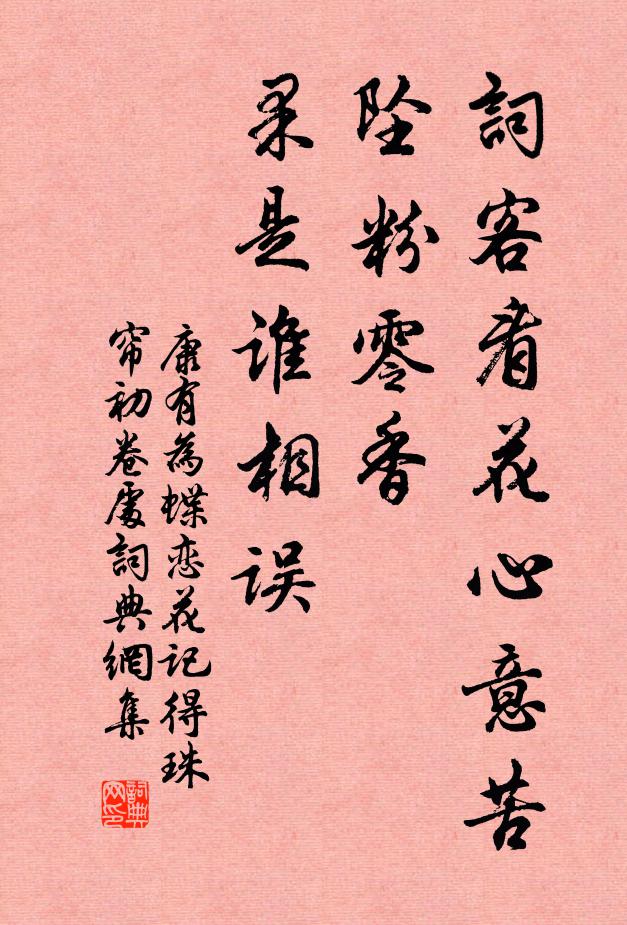 詞客看花心意苦
坠粉零香
果是谁相误
康有為蝶恋花记得珠
帘初卷處詞典網集
詞典
网印